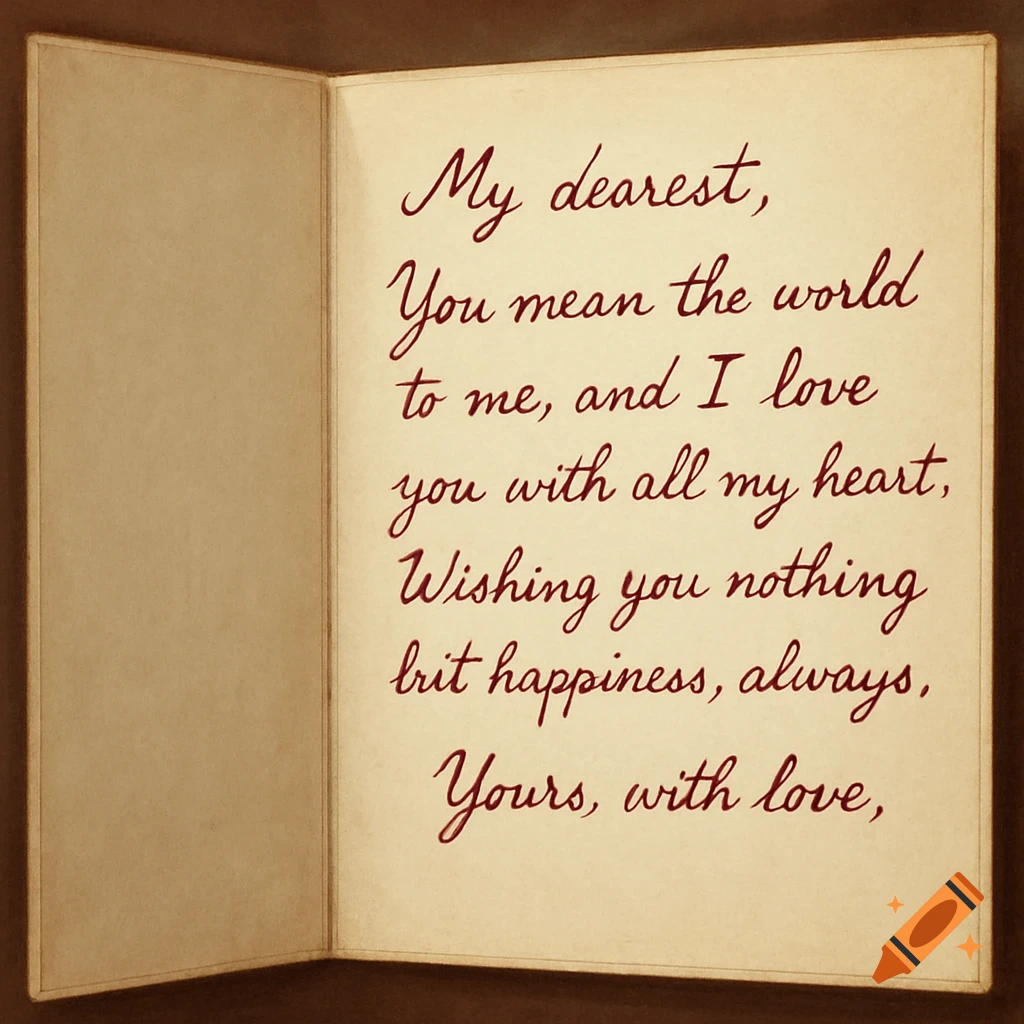 My dearest,
You mean the world
to me, and I love
you with all my heart,
Wishing you nothing
brit happiness, always,
Yours, with love,